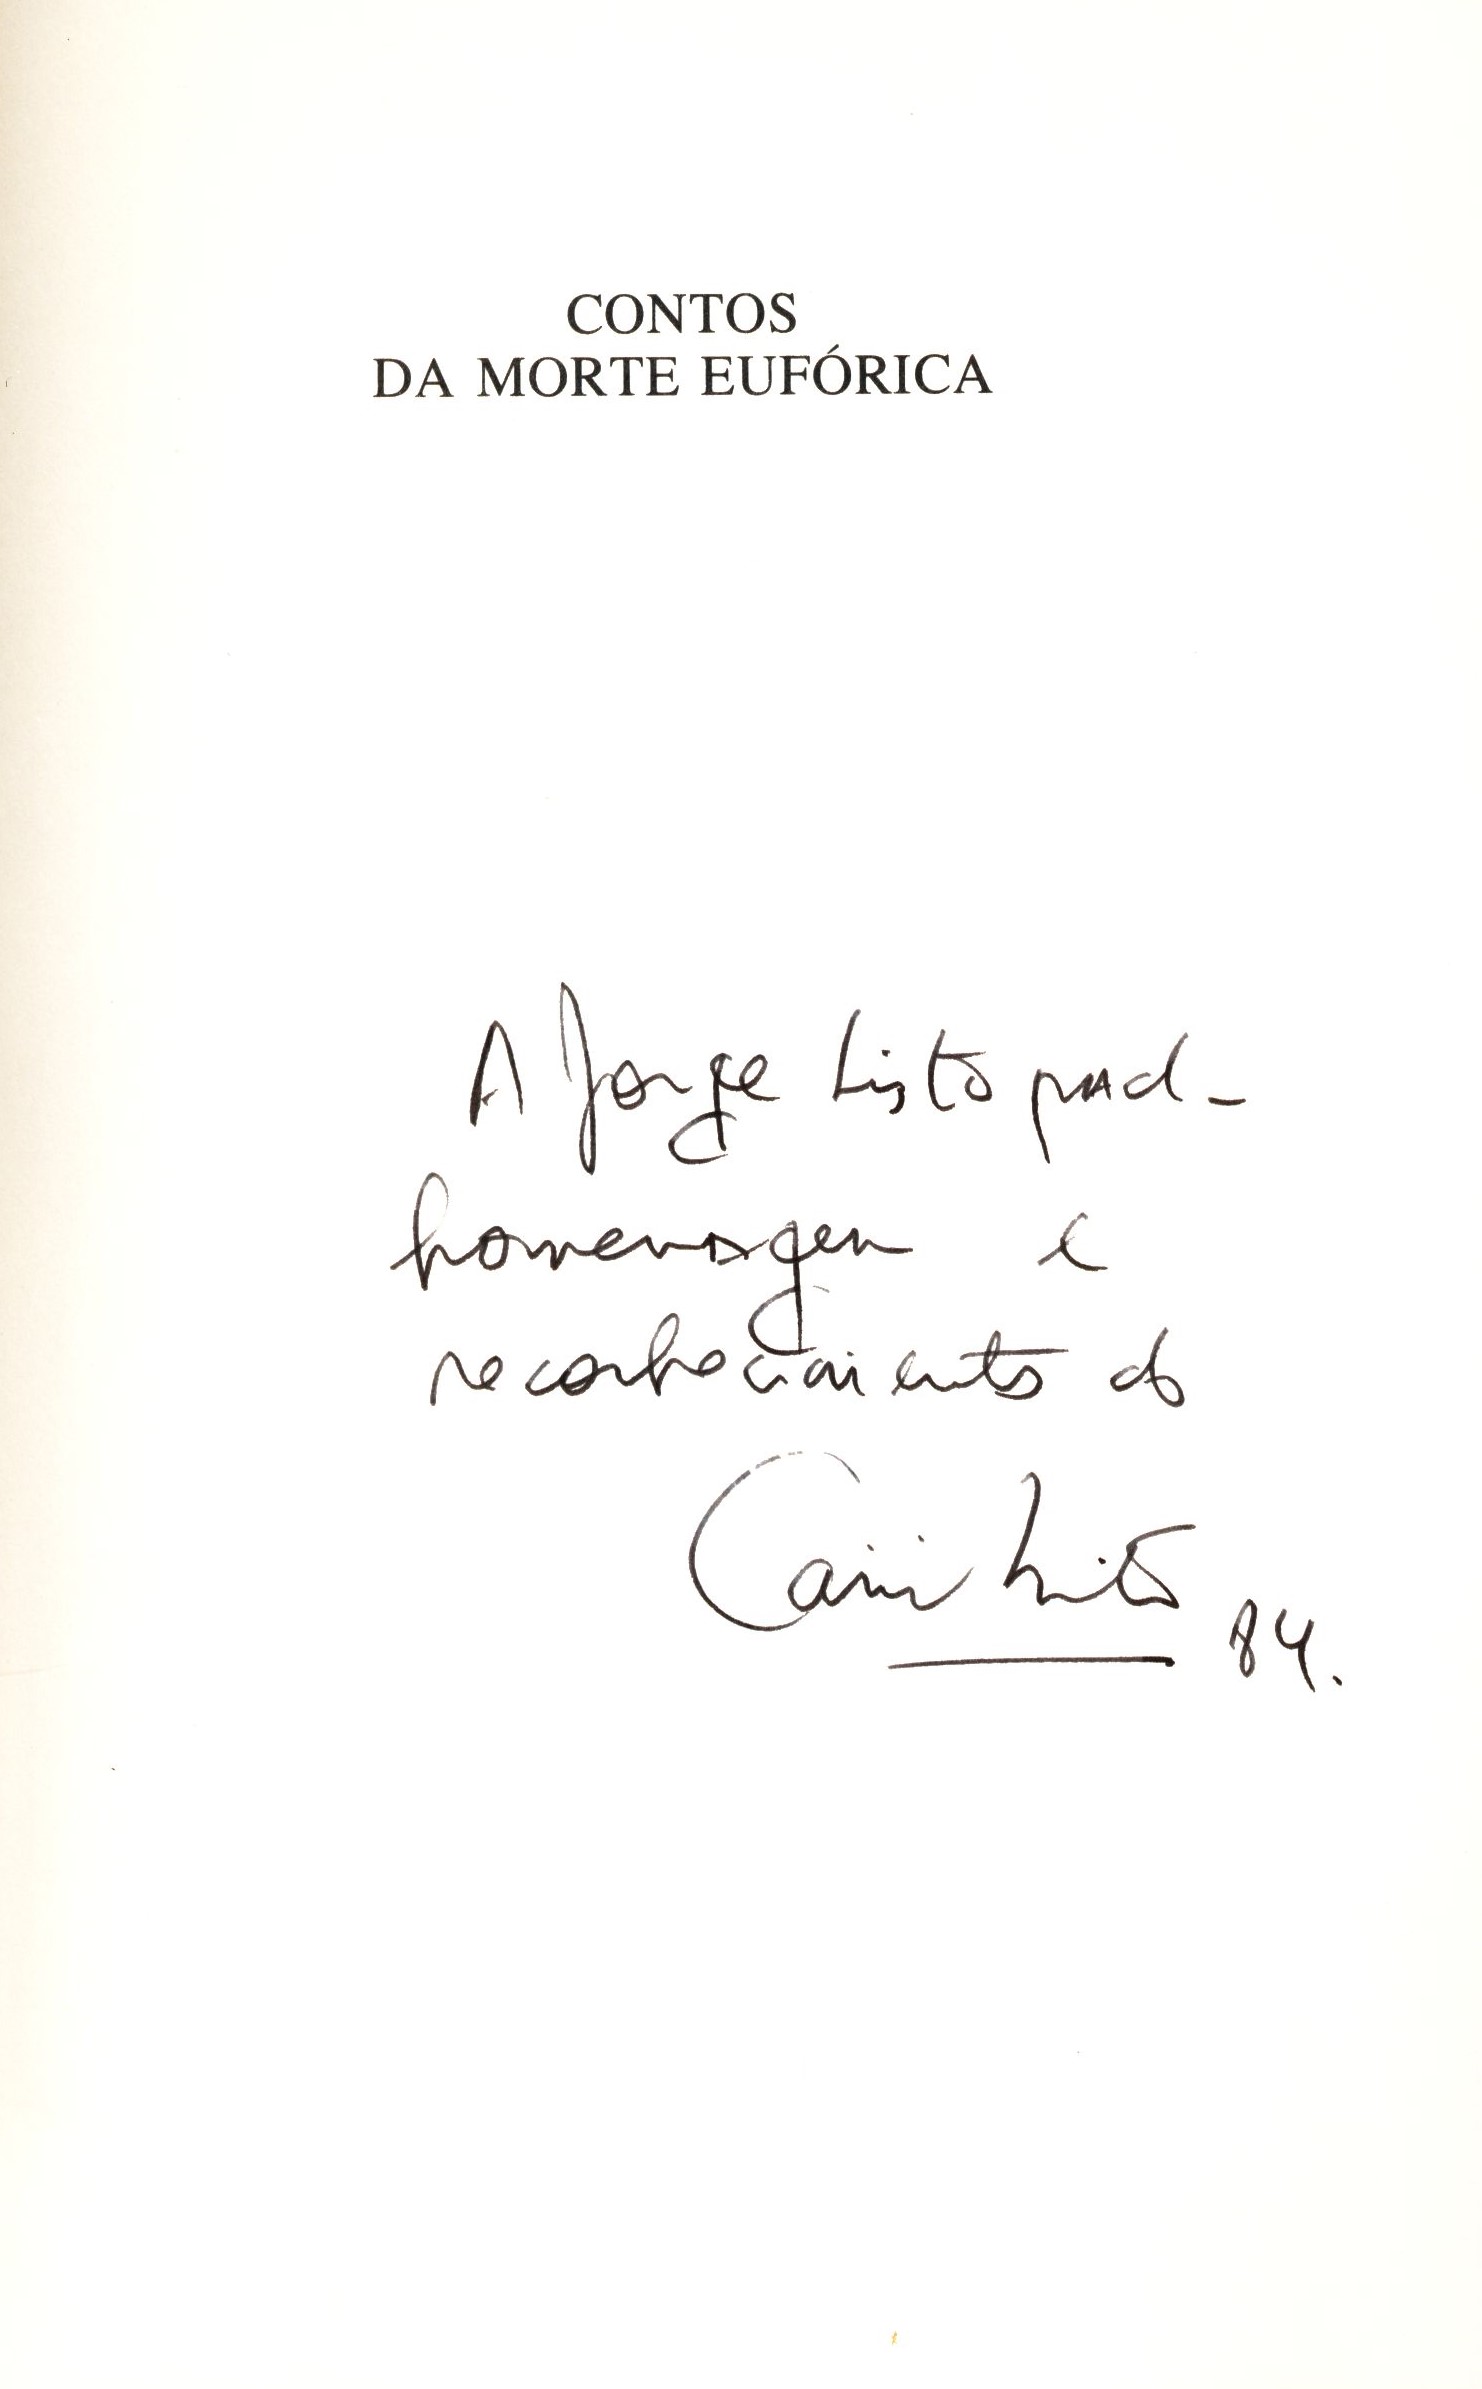 CONTOS
DA MORTE EUFÓRICA
A Jorge Listopad –
homenagem e
reconhecimento do
84.